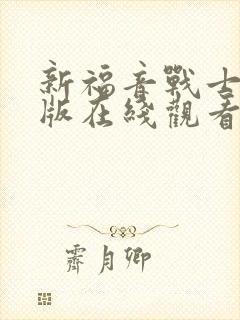 新福音戰士
版在綫觀看
霽月卿